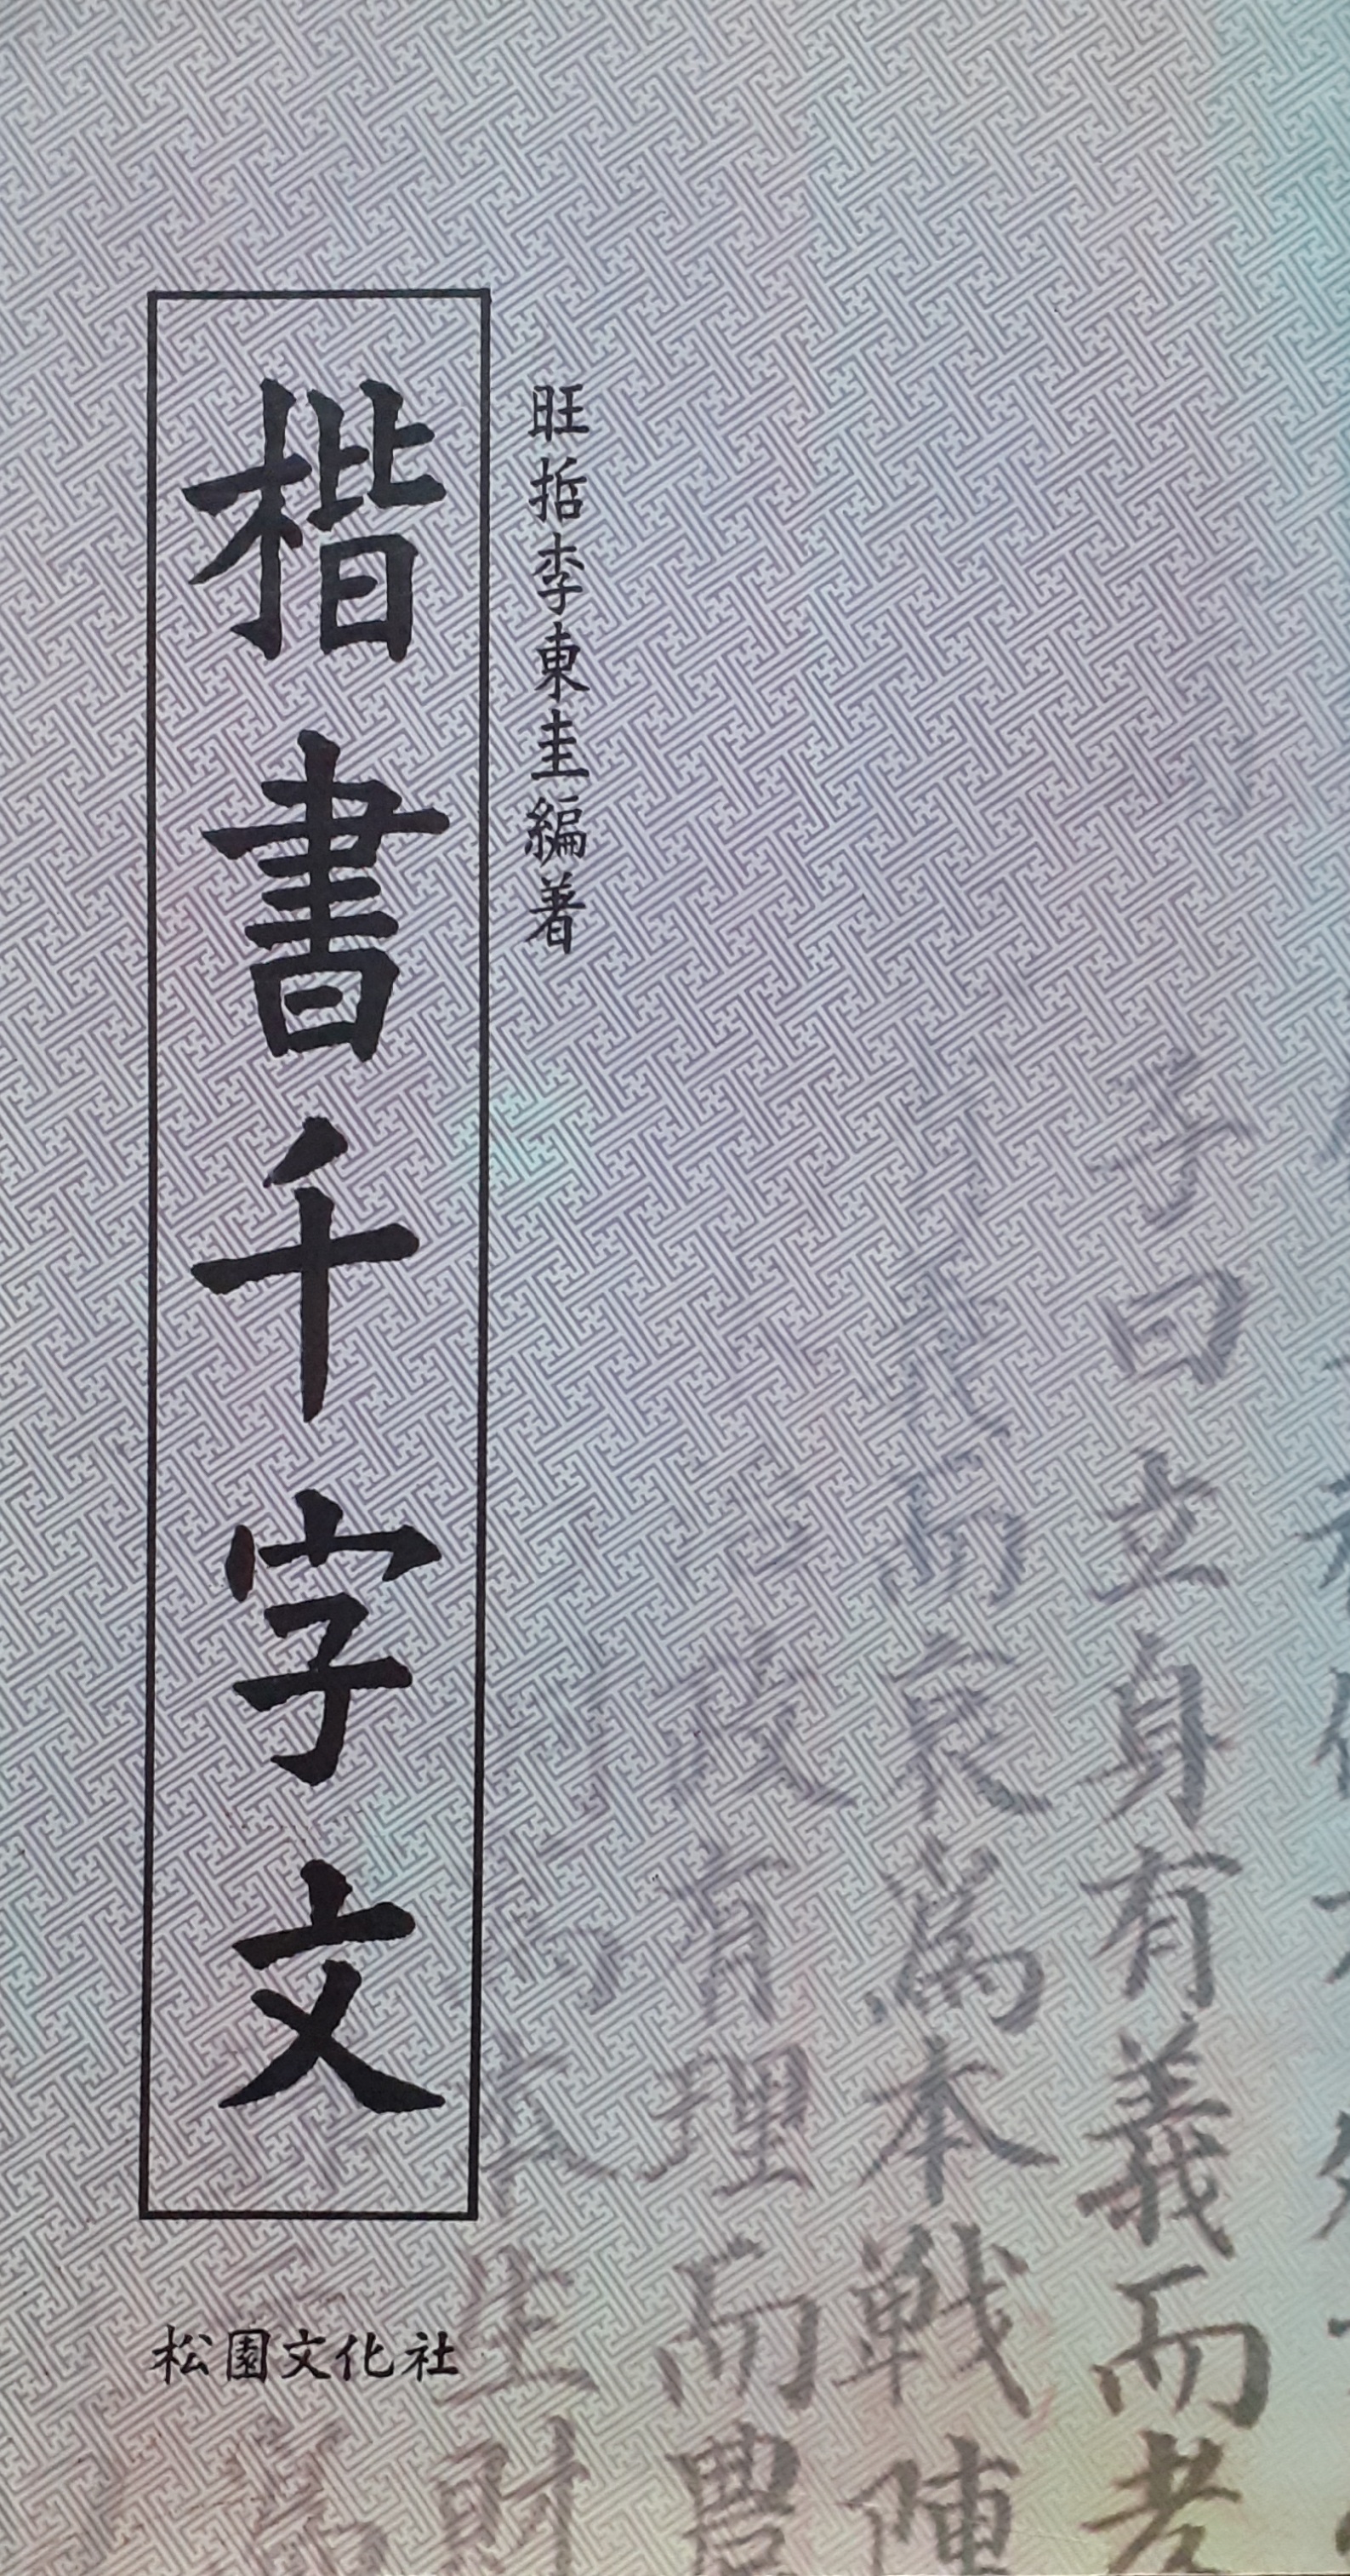 楷書千字文
旺哲李東圭編著
松園文化社
子曰立身有義而孝
禮而哀爲本戰陣
政有理而農
本生財